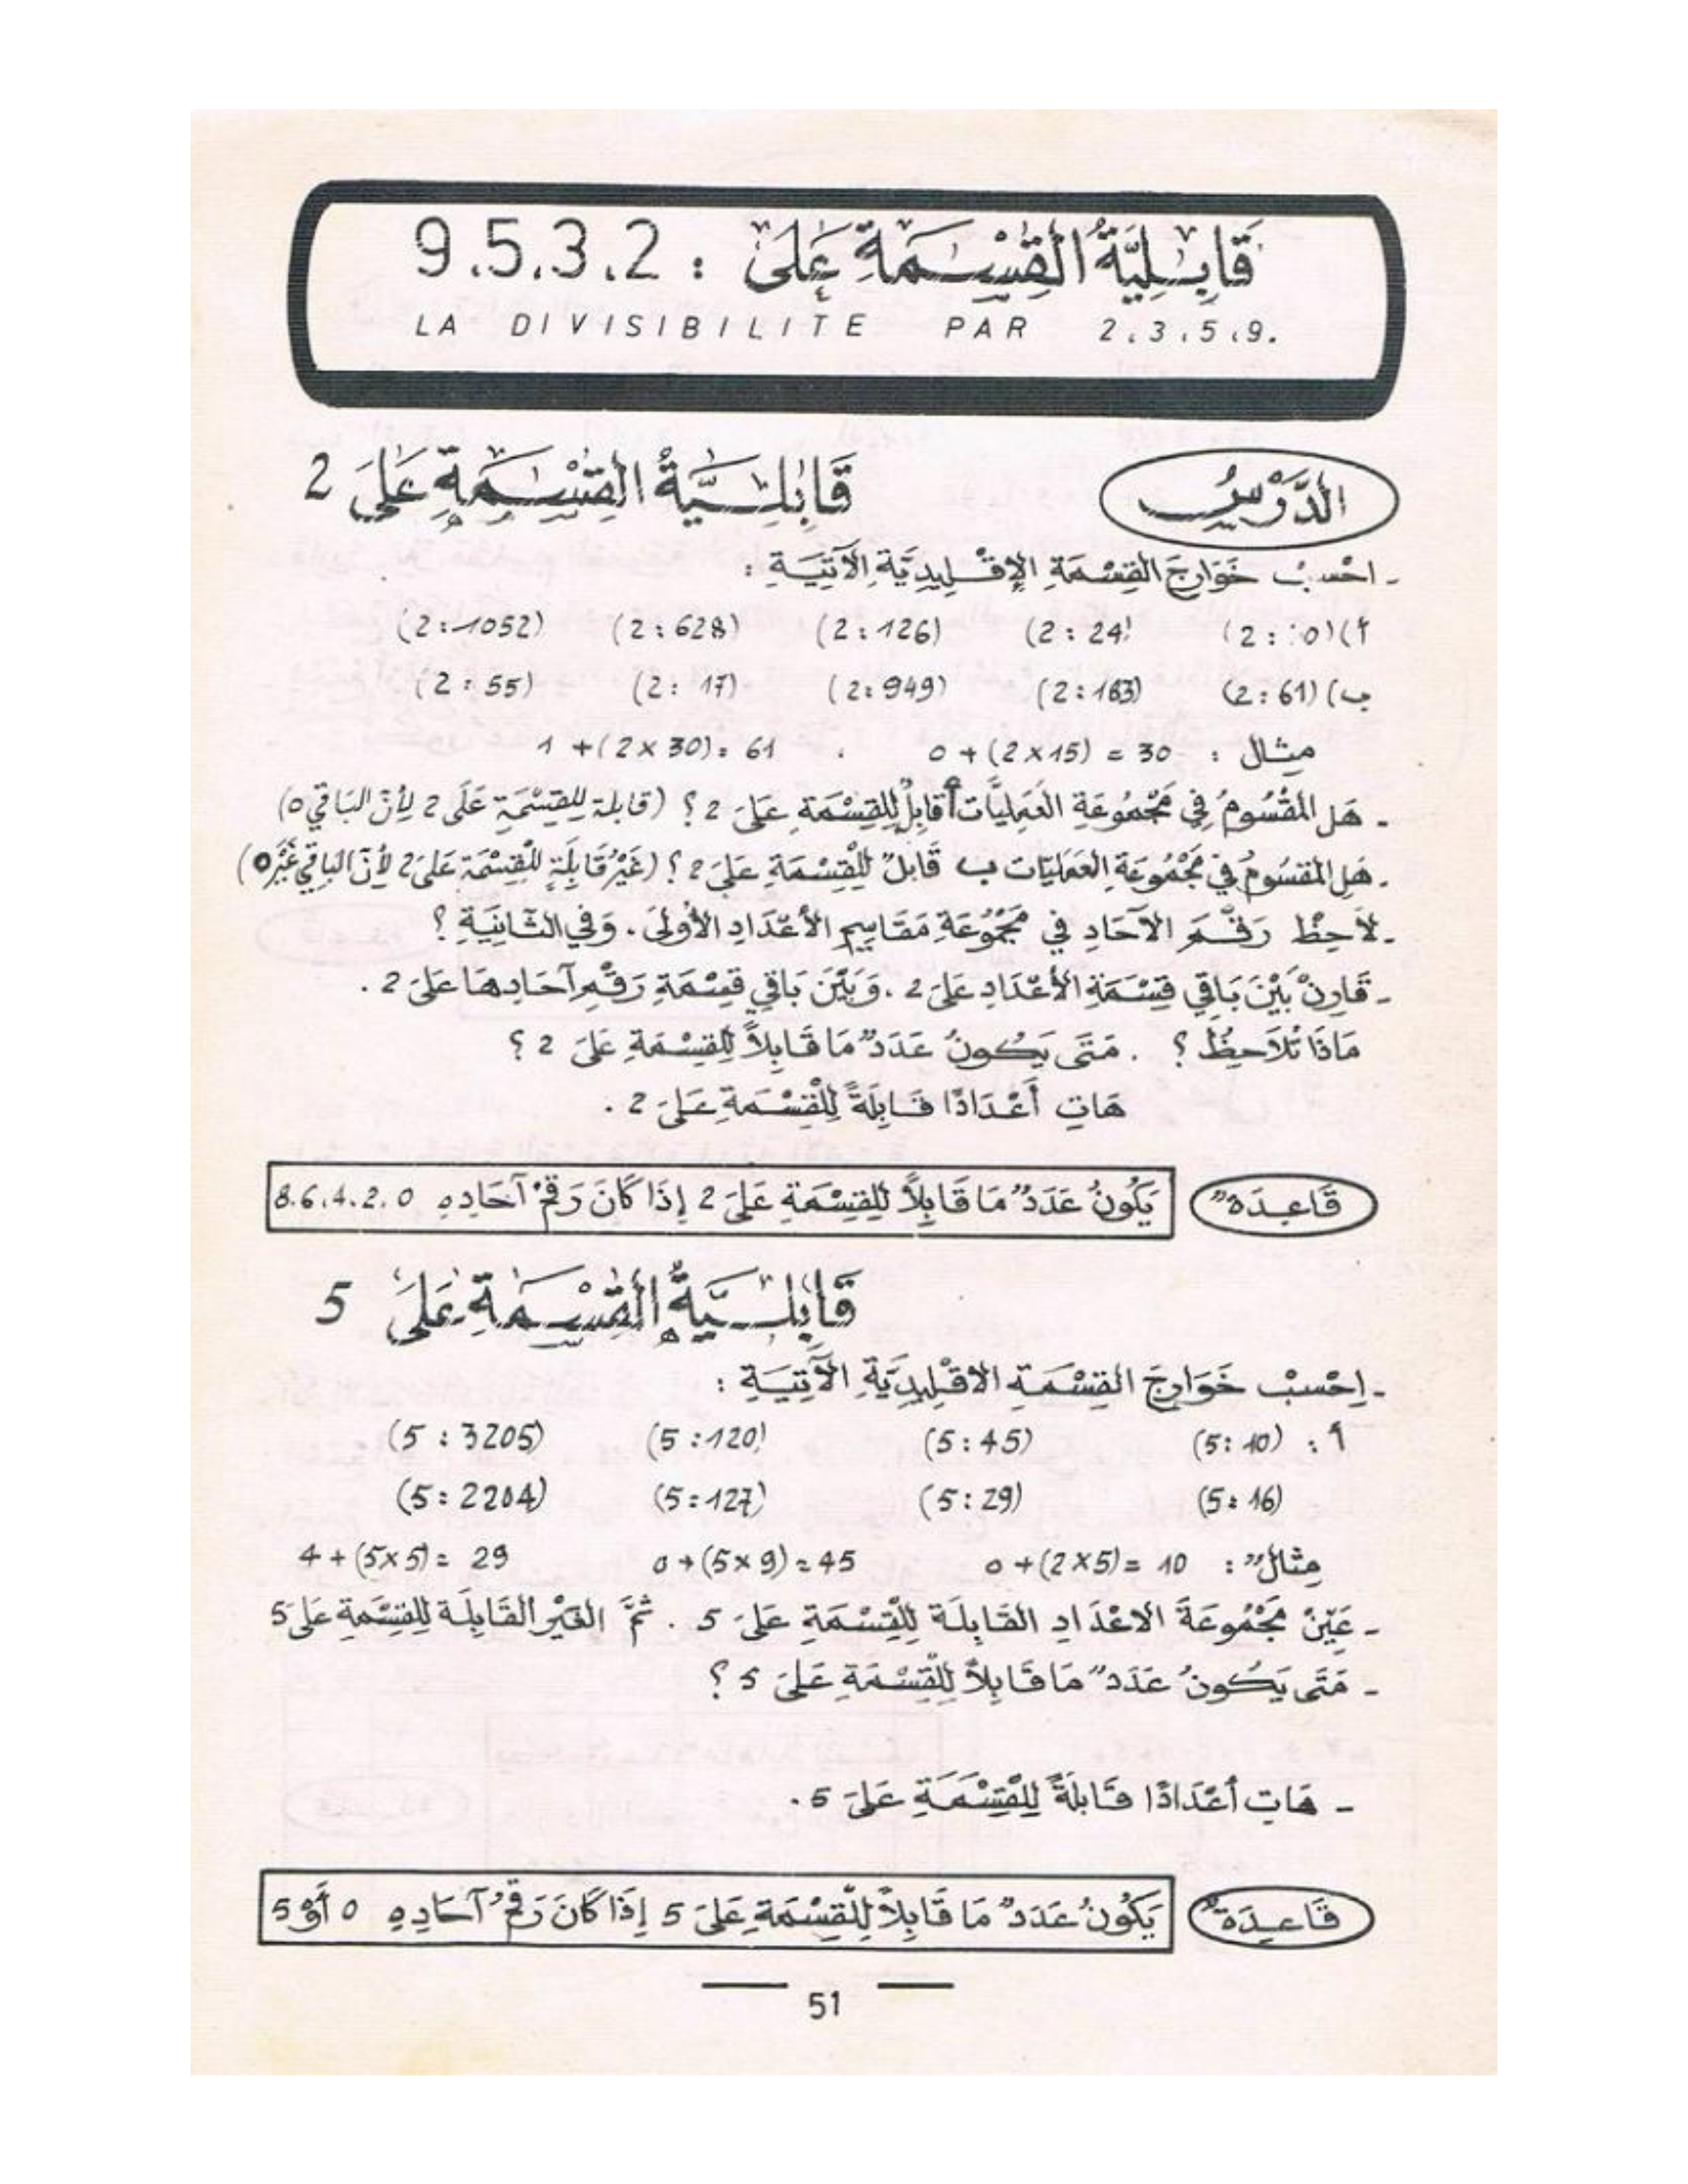 قَابِلِيَّةُ الْقِسْمَةِ عَلَى : 9.5.3.2
LA DIVISIBILITE PAR 2.3.5.9.
الدَّرْسُ
قَابِلِيَّةُ الْقِسْمَةِ عَلَى 2
- احْسبْ خَوَارِجَ القِسْمَةِ الإِقْلِيدِيَّةِ الآتِيَةِ :
أ) (2 : 0) (2 : 24) (2 : 126) (2 : 628) (2 : 1052)
ب) (2 : 61) (2 : 163) (2 : 949) (2 : 17) (2 : 55)
مثال : 30 = (2 × 15) + 0 . 61 = (2 × 30) + 1
- هَل المَقْسُومُ فِي مَجْمُوعَةِ العَمَلِيَّات أ قَابِلٌ لِلقِسْمَةِ عَلَى 2 ؟ (قابلة لِلقِسْمَةِ عَلَى 2 لِأنّ البَاقِي 0)
- هَلِ المَقسُومُ فِي مَجْمُوعَةِ العَمَلِيَّات ب قَابلٌ لِلْقِسْمَةِ عَلَى 2 ؟ (غَيْرُ قَابِلَةٍ لِلْقِسْمَة عَلَى 2 لأنّ الباقي غَيْر 0)
- لاَحِظْ رَقْمَ الآحَادِ فِي مَجْمُوعَةِ مَقَاسِيمِ الأَعْدَادِ الأُولَى . وَفِي الثَّانِيَةِ ؟
- قَارِنْ بَيْنَ بَاقِي قِسْمَةِ الأَعْدَادِ عَلَى 2 . وَبَيْنَ بَاقِي قِسْمَةِ رَقْمِ آحَادِهَا عَلَى 2 .
مَاذَا تُلاَحِظُ ؟ . مَتَى يَكُونُ عَدَدٌ مَا قَابِلاً لِلقِسْمَةِ عَلَى 2 ؟
هَاتِ أَعْدَادًا قَابِلَةً لِلْقِسْمَةِ عَلَى 2 .
قَاعِدَةٌ
يَكُونُ عَدَدٌ مَا قَابِلاً لِلقِسْمَةِ عَلَى 2 إِذَا كَانَ رَقْمُ آحَادِهِ 8.6.4.2.0
قَابِلِيَّةُ الْقِسْمَةِ عَلَى 5
- اِحْسبْ خَوَارِجَ القِسْمَةِ الاقْلِيدِيَّةِ الآتِيَةِ :
أ : (5 : 10) (5 : 45) (5 : 120) (5 : 3205)
(5 : 16) (5 : 29) (5 : 127) (5 : 2204)
مِثَالٌ : 10 = (2 × 5) + 0 45 = (5 × 9) + 0 29 = (5 × 5) + 4
- عَيِّنْ مَجْمُوعَةَ الاعْدَادِ القَابِلَة لِلْقِسْمَةِ عَلَى 5 . ثُمَّ الغَيْر القَابِلَة لِلقِسْمَةِ عَلَى 5
- مَتَى يَكُونُ عَدَدٌ مَا قَابِلاً لِلْقِسْمَةِ عَلَى 5 ؟
- هَاتِ أعْدَادًا قَابِلَةً لِلْقِسْمَةِ عَلَى 5 .
قَاعِدَةٌ
يَكُونُ عَدَدٌ مَا قَابِلاً لِلْقِسْمَةِ عَلَى 5 إِذَا كَانَ رَقْمُ آحَادِهِ 0 أَوْ 5
51